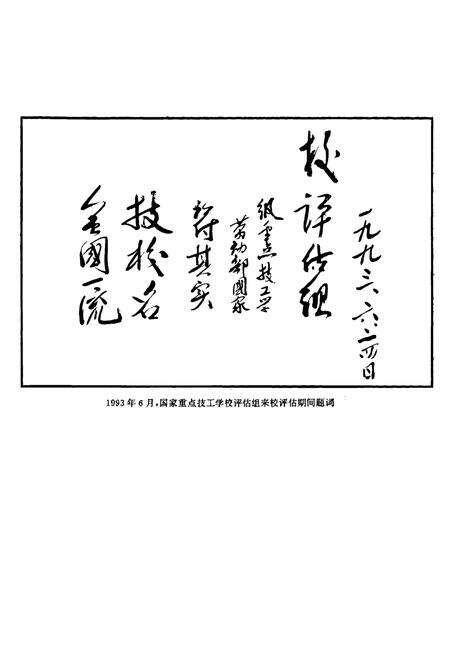 全國一流
技校名
符其实
劳动部國家
级重点技工学
校评估组
一九九三、六、二四日
1993年6月，国家重点技工学校评估组来校评估期间题词